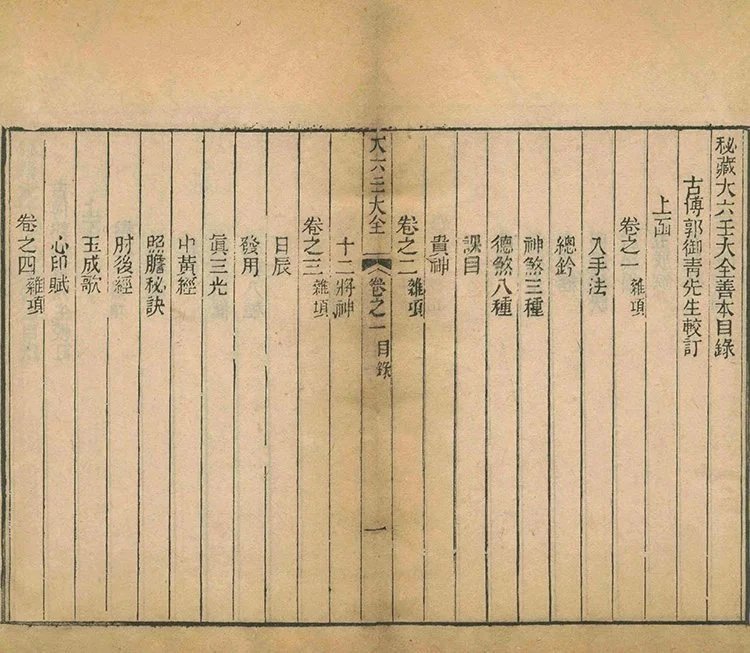 秘藏大六壬大全善本目錄
古博郭御青先生較訂
上函
卷之一 雜項
入手法
總鈐
神煞三種
德煞八種
課目
貴神
卷之二 雜項
大六壬大全 卷之一 目錄 一
十二將神
卷之三 雜項
日辰
發用
眞三光
中黃經
照膽秘訣
肘後經
玉成歌
心印賦
卷之四 雜項